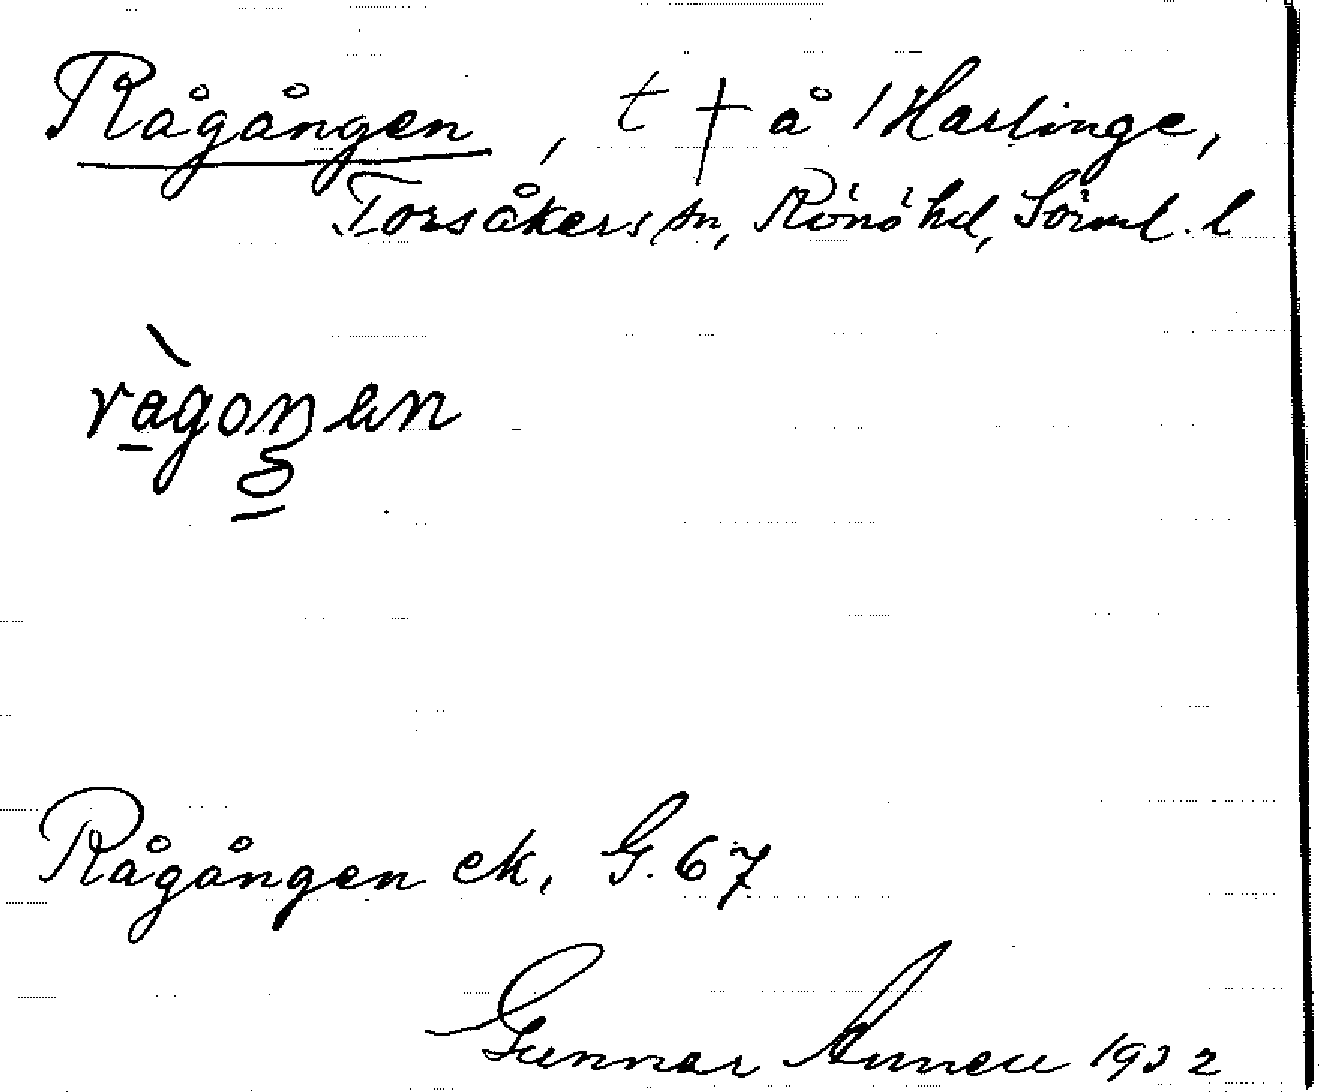 Rågången, t † å /Harlinge,
Torsåkers sn, Rönö hd, Sörml. l
Rågången ek, G. 67
Gunnar 1932